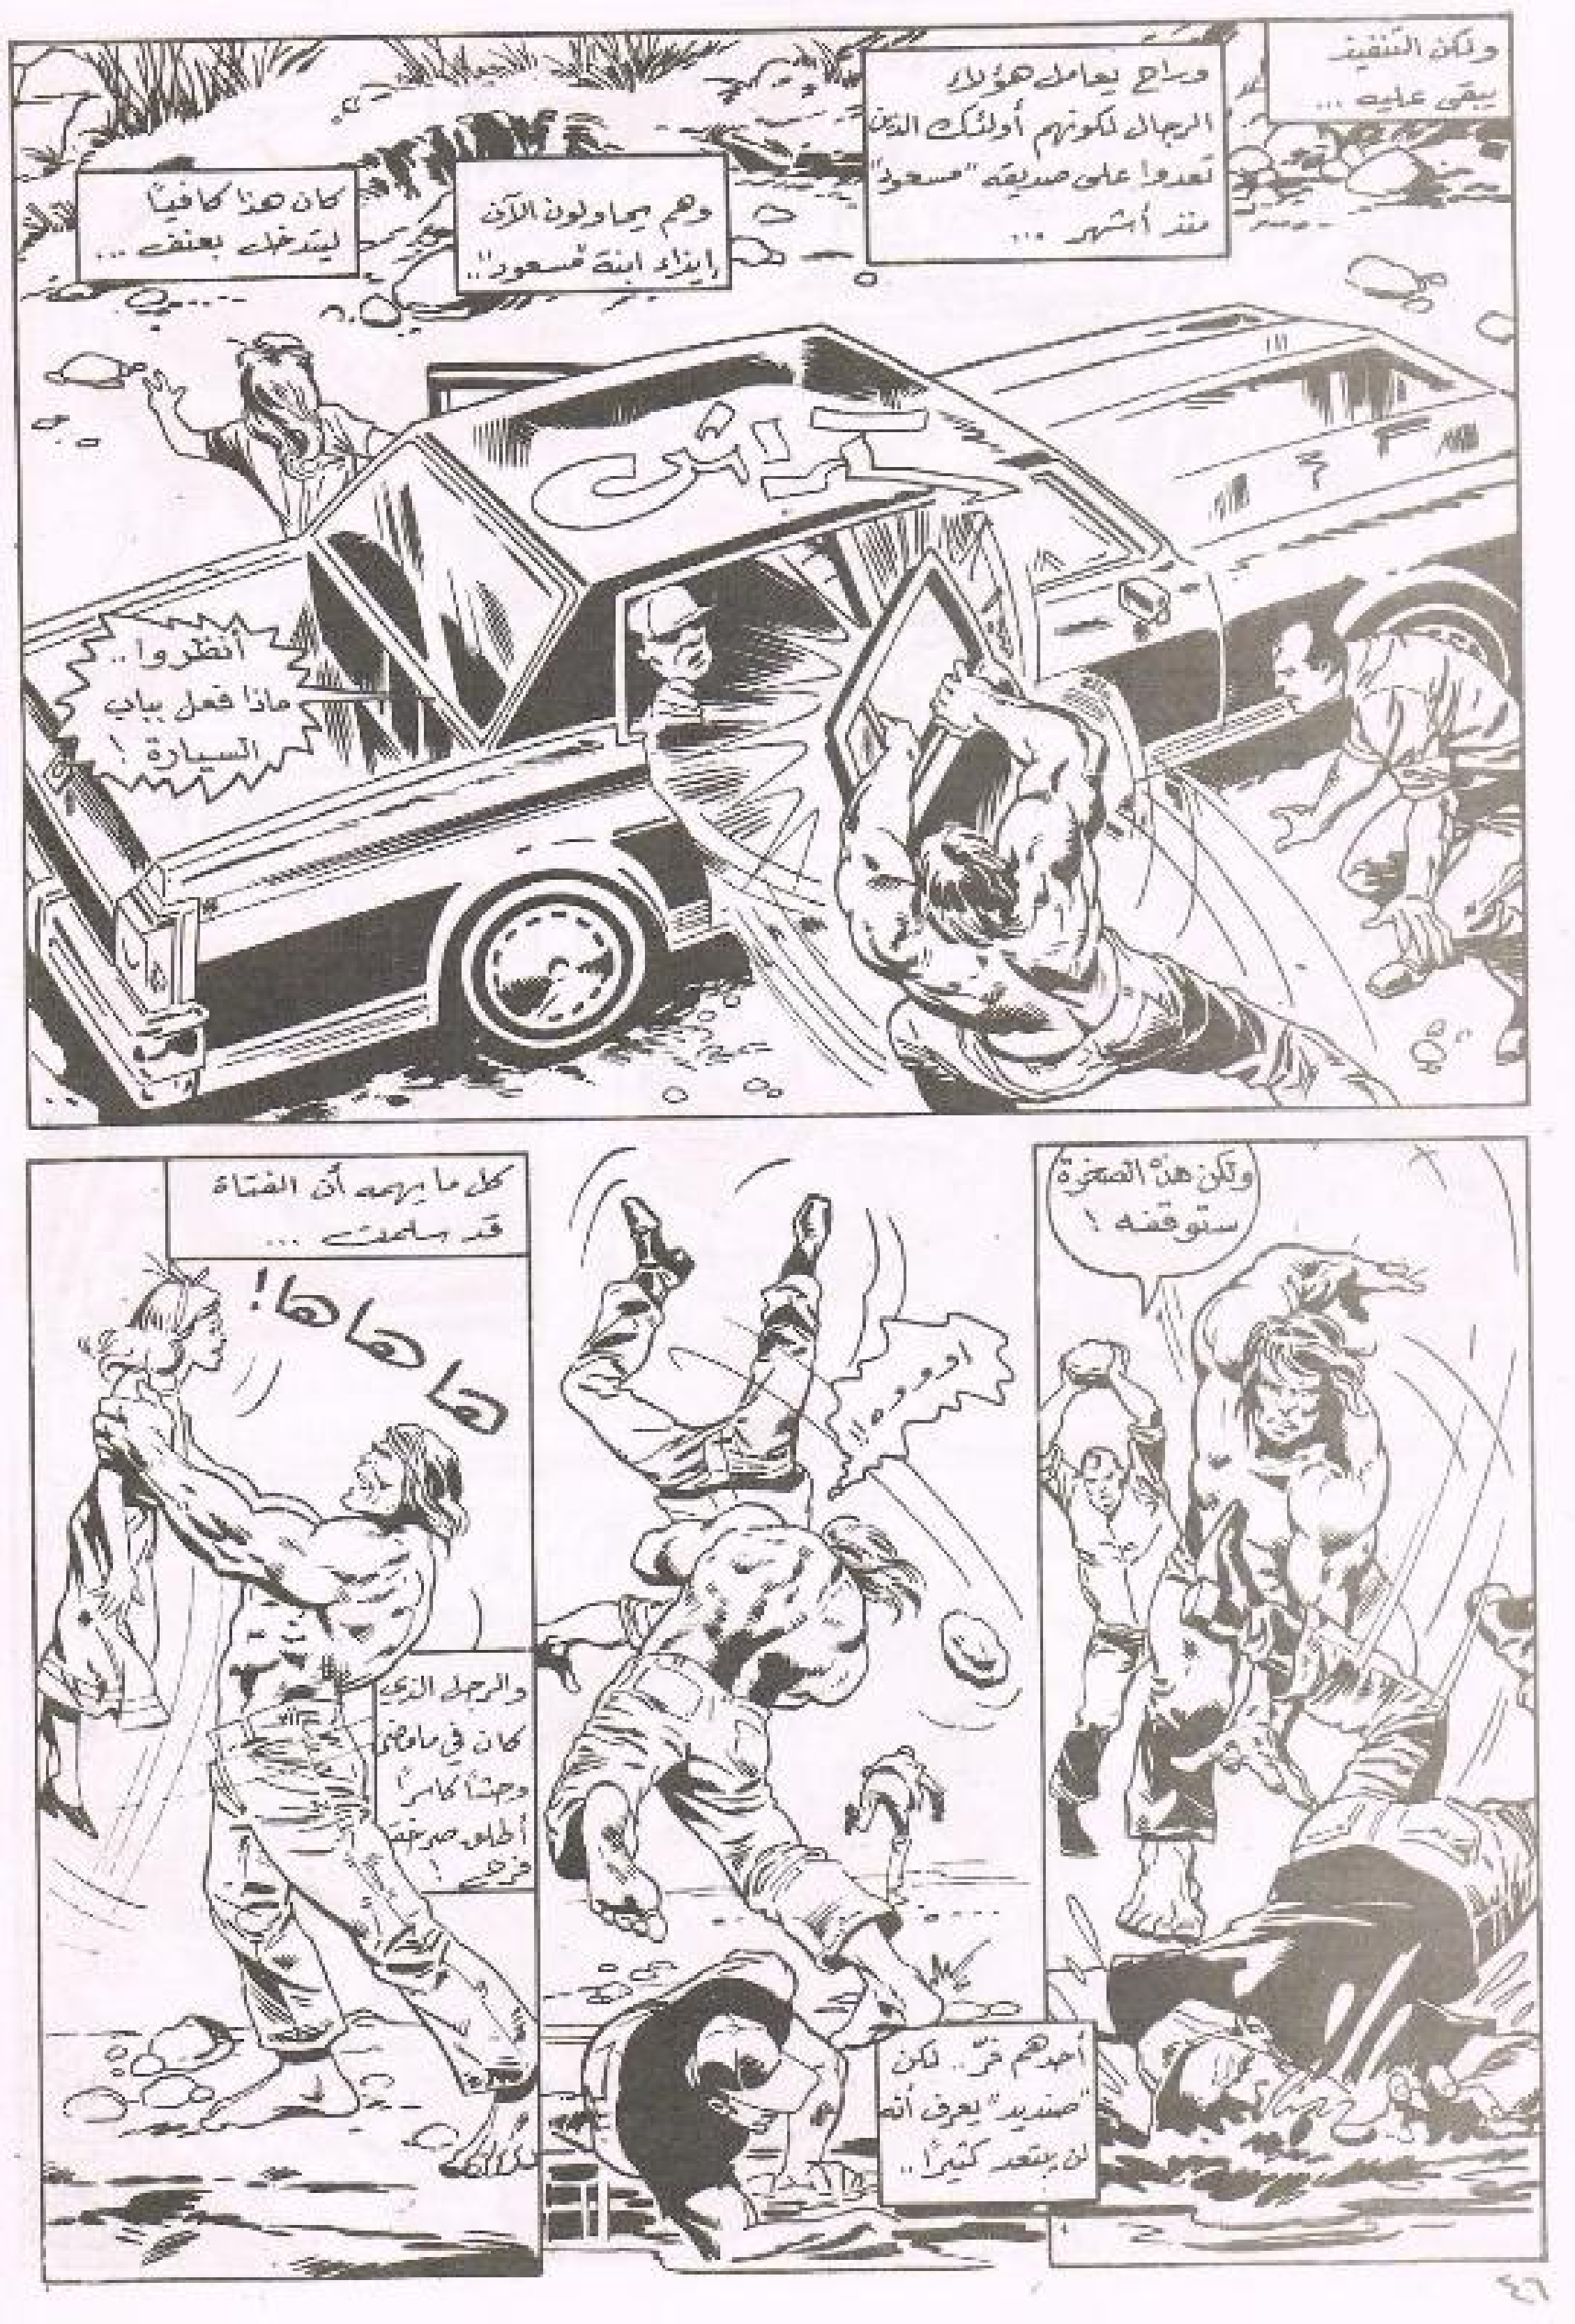 ولكن التنفيذ
يبقى عليه ...
وراح يعامل هؤلاء
الرجال لكونهم أولئك الذين
تعدوا على صديقه "مسعود"
منذ أشهر ...
وهم يحاولون الآن
إيذاء ابنة "مسعود"!..
كان هذا كافيًا
ليتدخل بعنف ...
كراش
أنظروا ..
ماذا فعل بباب
السيارة !
ولكن هذه الصخرة
ستوقفه !
اووه !!
أحدهم فرّ .. لكن
"صنديد" يعرف أنه
لن يبتعد كثيرًا ..
كل ما يهمه أن الفتاة
قد سلمت ...
ها ها ها !
والرجل الذي
كان في ما مضى
وحشًا كاسرًا
أطلق صرخة
فرح !
٤٦